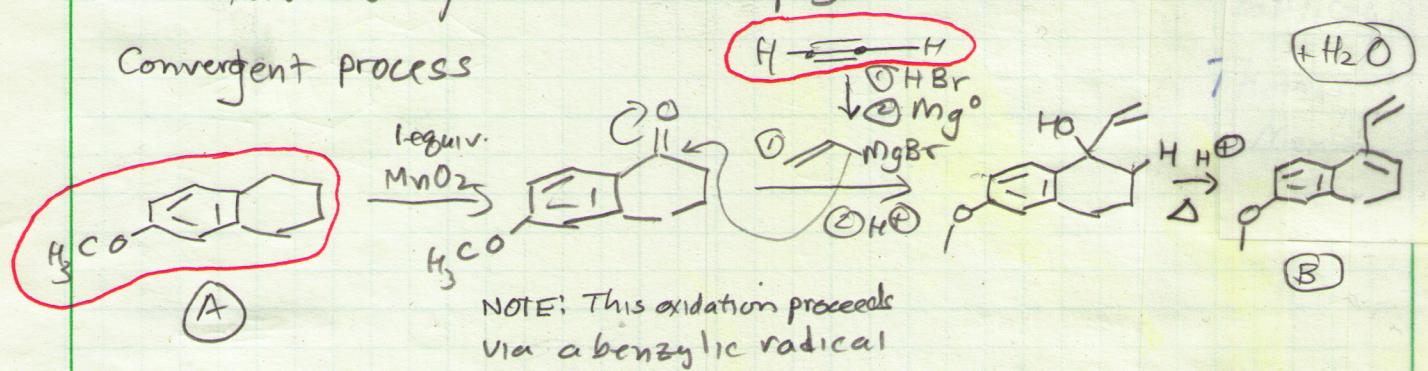 Convergent process
H H
① HBr
② Mg⁰
+ H₂O
1 equiv.
MnO₂
O
① MgBr
② H⊕
HO
H
H⊕
Δ
H₃CO
H₃CO
O
O
A
B
NOTE: This oxidation proceeds
via a benzylic radical